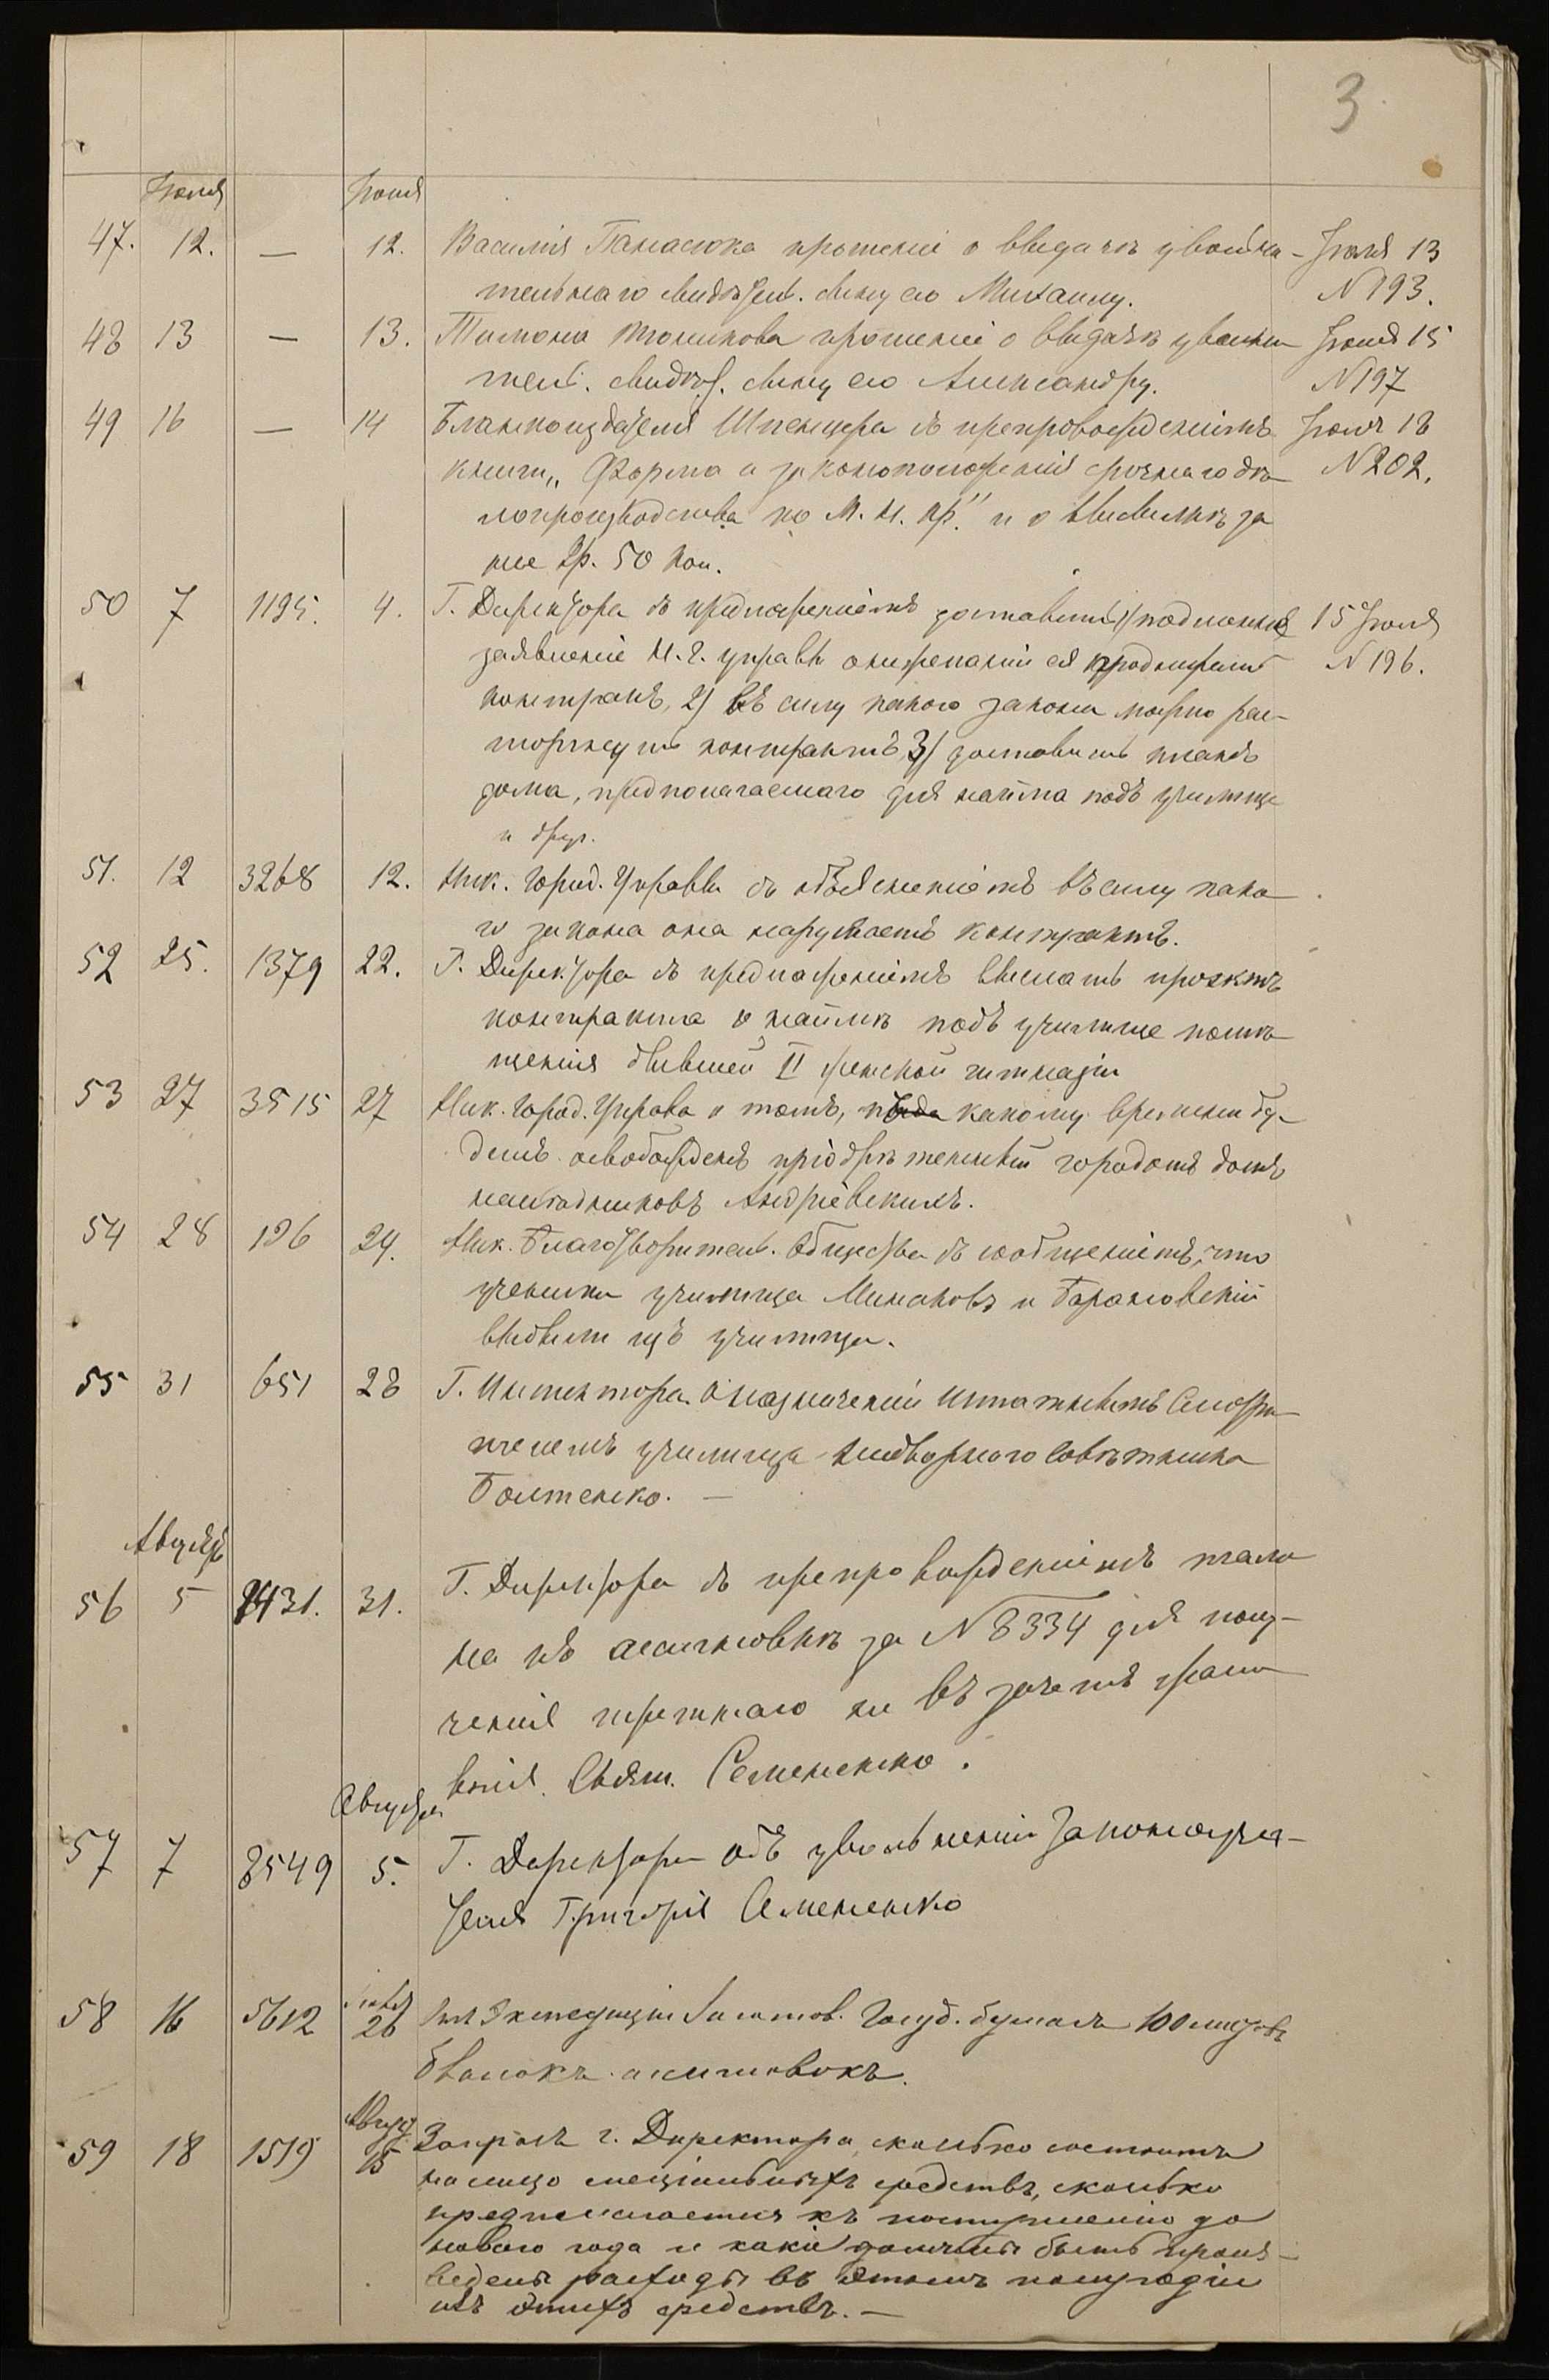 3
Іюля Іюля
47. 12. — 12. Василія Панасюка прошеніе о выдачѣ увольни- Іюля 13
тельнаго свидѣтел. сыну его Михаилу. N 193.
48 13 — 13. прошеніе о выдачѣ увольни Іюля 15
тел. свидѣт. сыну его Александру. N 197
49 16 — 14 Бланкоиздателя Шпенцера съ препровожденіемъ Іюля 18
книги „Форма и законоположенія срочнаго дѣ- N 202.
лопроизводства по М. Н. Пр." и о высылкѣ за
нее 2р. 50 коп.
50 7 1195. 4. Г. Директора съ предложеніемъ доставить 1) подлинное 15 Іюля
заявленіе Н. Г. управы о нежеланіи ея продолжать N 196.
контрактъ, 2) въ силу какого закона можно рас-
торгнуть контрактъ, 3) доставить планъ
дома, предполагаемаго для найма подъ училище
и друг.
51. 12 3268 12. Ник. Город. Управы съ объясненіемъ въ силу како
го закона она нарушаетъ контрактъ.
52 25. 1379 22. Г. Директора съ предложеніемъ выслать проэктъ
контракта о наймѣ подъ училище помѣ-
щенія бывшей II женской гимназіи
53 27 3515 27 Ник. Город. Управа о томъ, къ какому времени бу-
детъ освобожденъ пріобрѣтенный городомъ домъ
наслѣдниковъ Андріевскихъ.
54 28 126 24. Ник. Благотворител. Общества съ сообщеніемъ, что
ученики училища Минаковъ и Барановскій
выбыли изъ училища.
55 31 651 28 Г. Инспектора о назначеніи штатнымъ Смотри-
телемъ училища Надворнаго Совѣтника
Болтенко. —
Августъ
56 5 1431. 31. Г. Директора съ препровожденіемъ тало
на къ ассигновкѣ за N 8334 для полу-
ченія третнаго не въ зачетъ жало
ванія Свящ. Семененко.
Августа
57 7 8549 5. Г. Директора объ увольненіи Законоучи-
теля Григорія Семененко
58 16 5612 Іюля 26 Экспедиціи Заготов. Госуд. бумагъ 100 листовъ
бланокъ ассигновокъ.
59 18 1519 Авгус. 15 Запросъ г. Директора, сколько состоитъ
на лицо спеціальныхъ средствъ, сколько
предполагается къ поступленію до
новаго года и какіе должны быть произ-
ведены расходы въ этомъ полугодіи
изъ этихъ средствъ. —